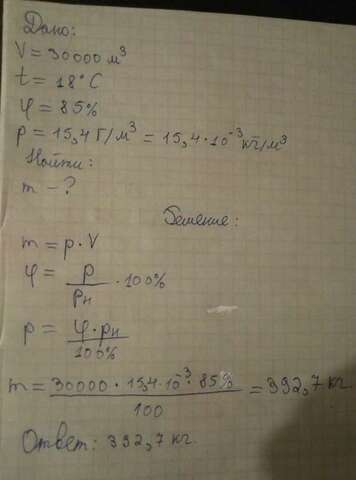 Дано:
V = 30000 м³
t = 18°С
φ = 85%
ρ = 15,4 г/м³ = 15,4 · 10⁻³ кг/м³
Найти:
m - ?
Решение:
m = ρ · V
φ = ρ / ρн · 100%
ρ = φ · ρн / 100%
m = 30000 · 15,4 · 10⁻³ · 85% / 100 = 392,7 кг.
Ответ: 392,7 кг.